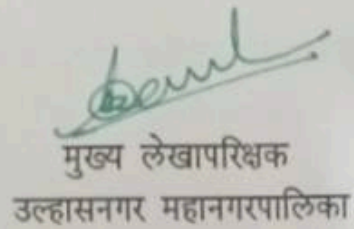 मुख्य लेखापरिक्षक
उल्हासनगर महानगरपालिका